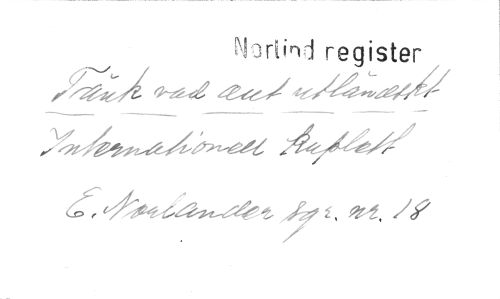 Norlind register
Tänk vad allt utländskt
Internationell Kuplett
E. Norlander sgr. nr. 18